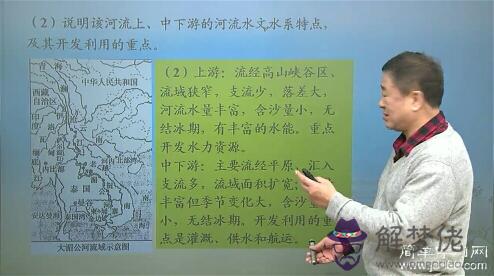 (2)说明该河流上、中下游的河流水文水系特点,
及其开发利用的重点。
青海
中华人民共和国
西藏
自治区
泰国
曼谷
泰国湾
安达曼海
大湄公河流域示意图
(2)上游:流经高山峡谷区、
流域狭窄,支流少,落差大,
河流水量丰富,含沙量小,无
结冰期,有丰富的水能。重点
开发水力资源。
中下游:主要流经平原,汇入
支流多,流域面积扩宽
丰富但季节变化大,含沙
小,无结冰期。开发利用的重
点是灌溉、供水和航运。
解梦佬